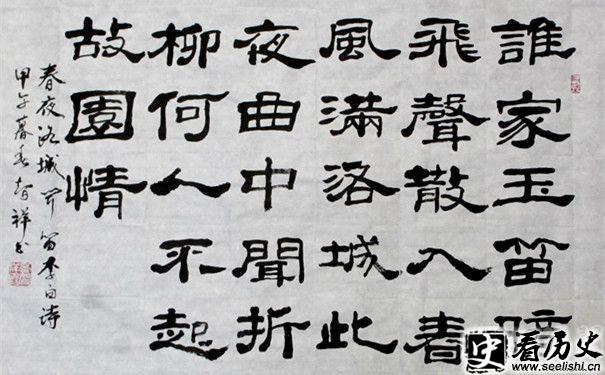 誰家玉笛暗
飛聲散入春
風滿洛城此
夜曲中聞折
柳何人不起
故園情
春夜洛城闻笛李白诗
甲午暮春智祥书
史
看历史
www.seelishi.cn